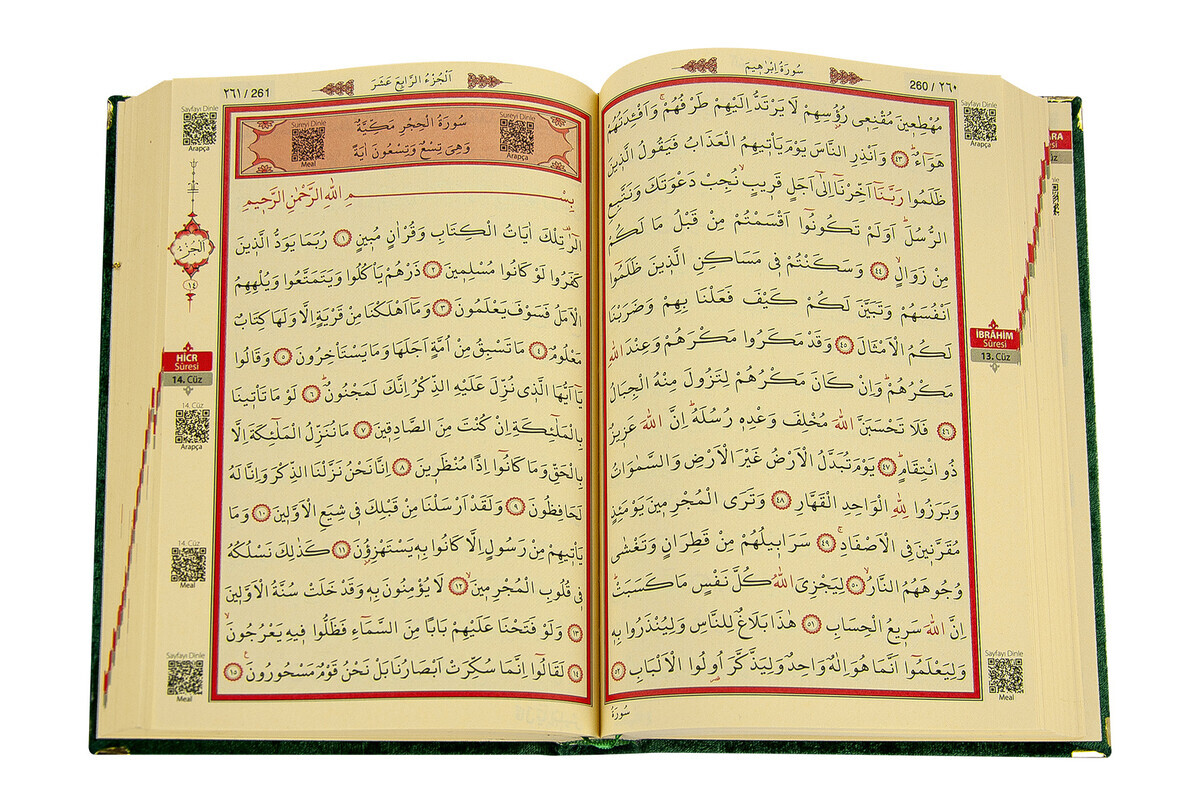 260 / ٢٦٠
سُورَةُ اِبْرٰه۪يمَ
Sayfayı Dinle
Arapça
مُهْطِع۪ينَ مُقْنِع۪ي رُؤُ۫سِهِمْ لَا يَرْتَدُّ اِلَيْهِمْ طَرْفُهُمْۚ وَاَفْـِٔدَتُهُمْ
هَوَٓاءٌۜ ٤٣ وَاَنْذِرِ النَّاسَ يَوْمَ يَأْت۪يهِمُ الْعَذَابُ فَيَقُولُ الَّذ۪ينَ
ظَلَمُوا رَبَّنَٓا اَخِّرْنَٓا اِلٰٓى اَجَلٍ قَر۪يبٍۙ نُجِبْ دَعْوَتَكَ وَنَتَّبِعِ
الرُّسُلَۜ اَوَلَمْ تَكُونُٓوا اَقْسَمْتُمْ مِنْ قَبْلُ مَا لَكُمْ
مِنْ زَوَالٍۙ ٤٤ وَسَكَنْتُمْ ف۪ي مَسَاكِنِ الَّذ۪ينَ ظَلَمُٓوا
اَنْفُسَهُمْ وَتَبَيَّنَ لَكُمْ كَيْفَ فَعَلْنَا بِهِمْ وَضَرَبْنَا
لَكُمُ الْاَمْثَالَ ٤٥ وَقَدْ مَكَرُوا مَكْرَهُمْ وَعِنْدَ اللّٰهِ
مَكْرُهُمْۜ وَاِنْ كَانَ مَكْرُهُمْ لِتَزُولَ مِنْهُ الْجِبَالُ
٤٦ فَلَا تَحْسَبَنَّ اللّٰهَ مُخْلِفَ وَعْدِه۪ رُسُلَهُۜ اِنَّ اللّٰهَ عَز۪يزٌ
ذُو انْتِقَامٍۜ ٤٧ يَوْمَ تُبَدَّلُ الْاَرْضُ غَيْرَ الْاَرْضِ وَالسَّمٰوَاتُ
وَبَرَزُوا لِلّٰهِ الْوَاحِدِ الْقَهَّارِ ٤٨ وَتَرَى الْمُجْرِم۪ينَ يَوْمَئِذٍ
مُقَرَّن۪ينَ فِي الْاَصْفَادِۚ ٤٩ سَرَاب۪يلُهُمْ مِنْ قَطِرَانٍ وَتَغْشٰى
وُجُوهَهُمُ النَّارُۙ ٥٠ لِيَجْزِيَ اللّٰهُ كُلَّ نَفْسٍ مَا كَسَبَتْۜ
اِنَّ اللّٰهَ سَر۪يعُ الْحِسَابِ ٥١ هٰذَا بَلَاغٌ لِلنَّاسِ وَلِيُنْذَرُوا بِه۪
وَلِيَعْلَمُٓوا اَنَّمَا هُوَ اِلٰهٌ وَاحِدٌ وَلِيَذَّكَّرَ اُو۬لُوا الْاَلْبَابِ ٥٢
سُورَةُ
İBRÂHİM
Sûresi
13. Cüz
Sayfayı Dinle
Meal
٢٦١ / 261
اَلْجُزْءُ الرَّابِعَ عَشَرَ
Sayfayı Dinle
Arapça
سُورَةُ الْحِجْرِ مَكِّيَّةٌ
وَهِيَ تِسْعٌ وَتِسْعُونَ اٰيَةً
Sureyi Dinle
Arapça
Sureyi Dinle
Meal
بِسْمِ اللّٰهِ الرَّحْمٰنِ الرَّح۪يمِ
الٓرٰ۠ تِلْكَ اٰيَاتُ الْكِتَابِ وَقُرْاٰنٍ مُب۪ينٍ ١ رُبَمَا يَوَدُّ الَّذ۪ينَ
كَفَرُوا لَوْ كَانُوا مُسْلِم۪ينَ ٢ ذَرْهُمْ يَأْكُلُوا وَيَتَمَتَّعُوا وَيُلْهِهِمُ
الْاَمَلُ فَسَوْفَ يَعْلَمُونَ ٣ وَمَٓا اَهْلَكْنَا مِنْ قَرْيَةٍ اِلَّا وَلَهَا كِتَابٌ
مَعْلُومٌ ٤ مَا تَسْبِقُ مِنْ اُمَّةٍ اَجَلَهَا وَمَا يَسْتَأْخِرُونَ ٥ وَقَالُوا
يَٓا اَيُّهَا الَّذ۪ي نُزِّلَ عَلَيْهِ الذِّكْرُ اِنَّكَ لَمَجْنُونٌۜ ٦ لَوْ مَا تَأْت۪ينَا
بِالْمَلٰٓئِكَةِ اِنْ كُنْتَ مِنَ الصَّادِق۪ينَ ٧ مَا نُنَزِّلُ الْمَلٰٓئِكَةَ اِلَّا
بِالْحَقِّ وَمَا كَانُٓوا اِذًا مُنْظَر۪ينَ ٨ اِنَّا نَحْنُ نَزَّلْنَا الذِّكْرَ وَاِنَّا لَهُ
لَحَافِظُونَ ٩ وَلَقَدْ اَرْسَلْنَا مِنْ قَبْلِكَ ف۪ي شِيَعِ الْاَوَّل۪ينَ ١٠ وَمَا
يَأْت۪يهِمْ مِنْ رَسُولٍ اِلَّا كَانُوا بِه۪ يَسْتَهْزِؤُ۫نَ ١١ كَذٰلِكَ نَسْلُكُهُ
ف۪ي قُلُوبِ الْمُجْرِم۪ينَۙ ١٢ لَا يُؤْمِنُونَ بِه۪ وَقَدْ خَلَتْ سُنَّةُ الْاَوَّل۪ينَ
١٣ وَلَوْ فَتَحْنَا عَلَيْهِمْ بَابًا مِنَ السَّمَٓاءِ فَظَلُّوا ف۪يهِ يَعْرُجُونَۙ
١٤ لَقَالُٓوا اِنَّمَا سُكِّرَتْ اَبْصَارُنَا بَلْ نَحْنُ قَوْمٌ مَسْحُورُونَ۟ ١٥
اَلْجُزْءُ
١٤
HİCR
Sûresi
14. Cüz
14. Cüz
Arapça
14. Cüz
Meal
Sayfayı Dinle
Meal